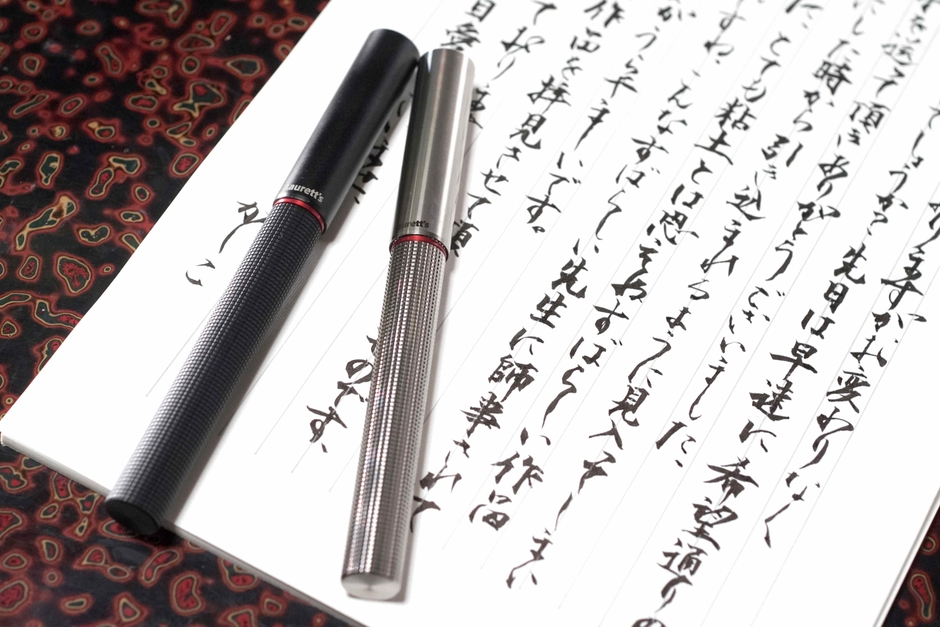 事すがお変わりなく
でしょうか 先日は早速に希望通りの
を送って頂きありがとうございました。
にした時から引き込まれるように見入ってしまい
た、とても粘土とは思えぬすばらしい作品
ですね こんなすばらしい先生に師事されて
うらやましいです。
作品を拝見させて頂
ており
のです、
かしこ
Laurett's
aurett's